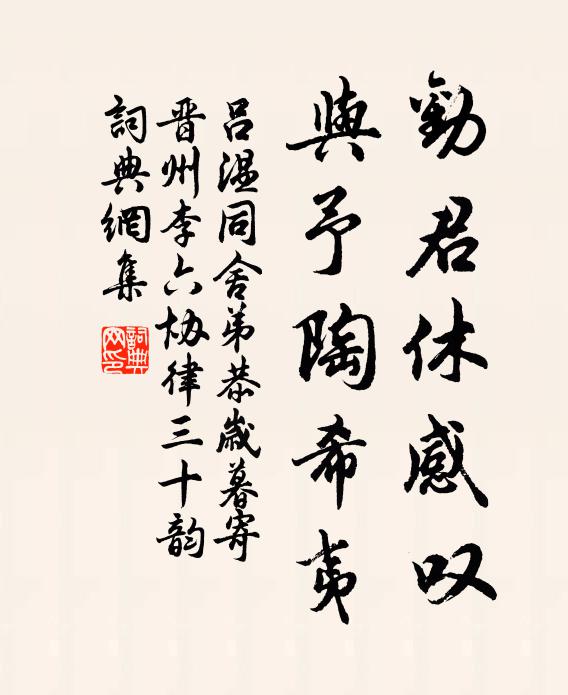 勸君休感叹
與予陶希夷
呂溫同舍弟恭歲暮寄
晋州李六协律三十韵
詞典網集
詞典网印